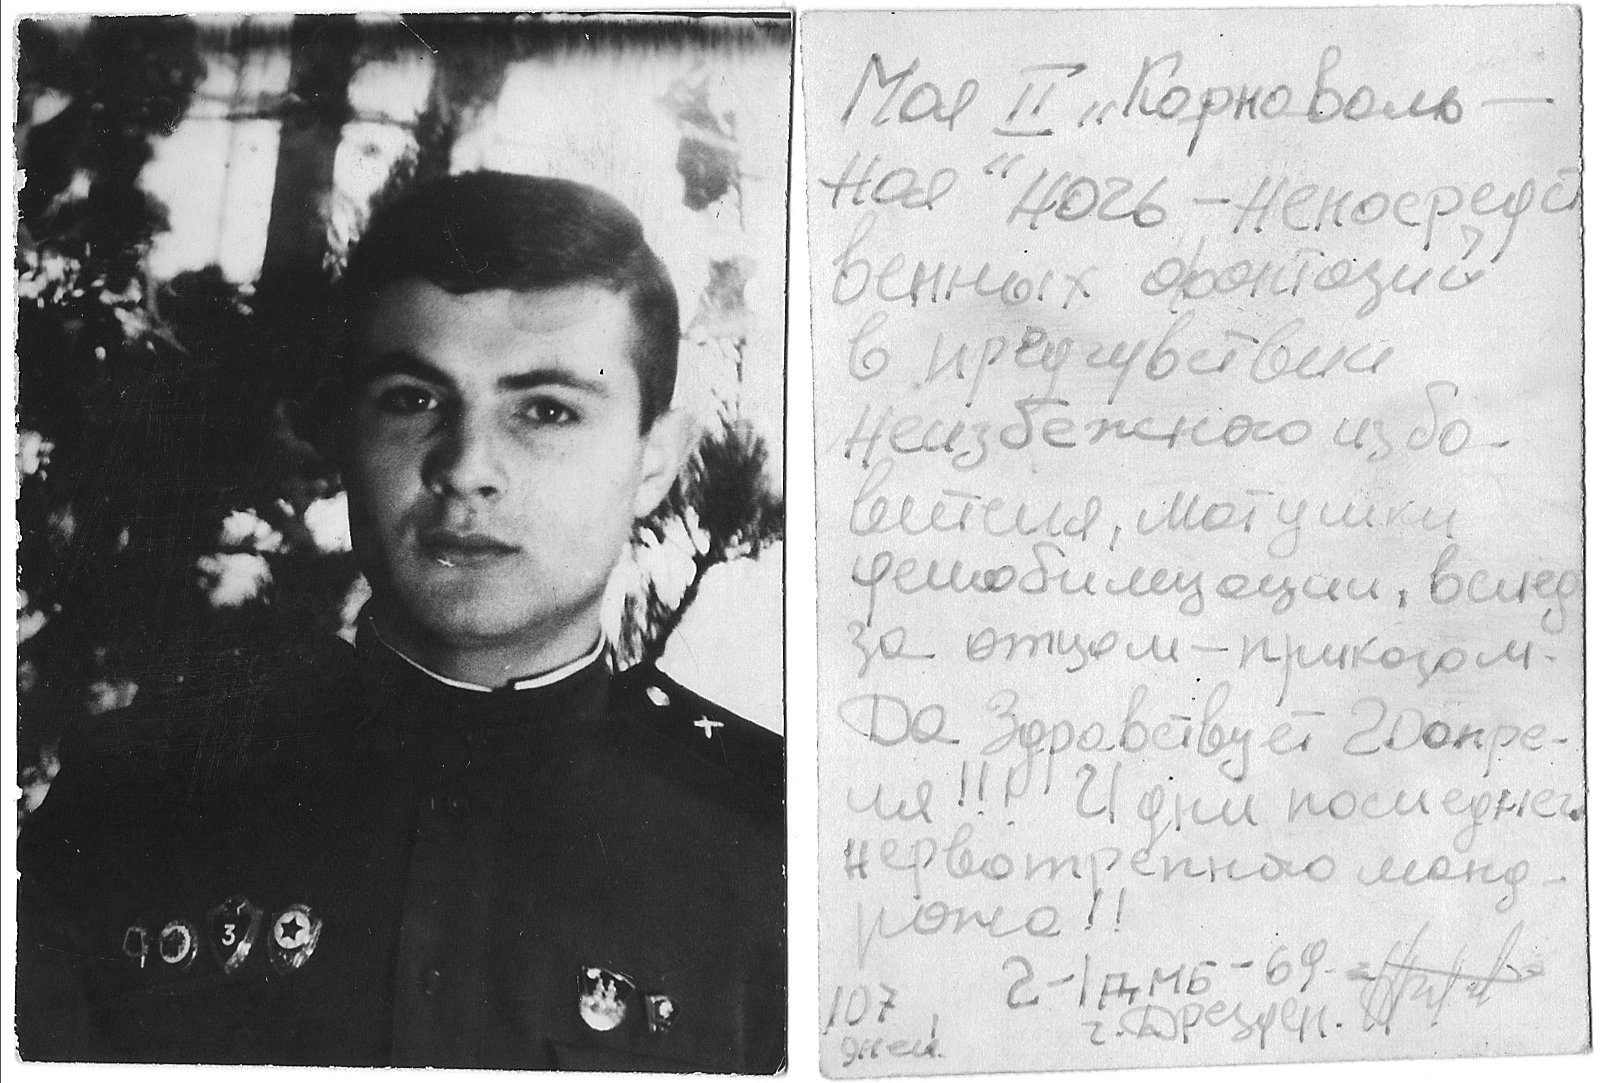 3
Моя II „Корноволь-
ная“ ночь - непосредст
венных фонтозий
в предчувствии
неизбежного избо-
вителя, мотушки
демобилизоции, вслед
за отцом - прикозом.
До Здровствует 20 опре-
ля!!! И дни последнего
нервотрепного монд-
рожо!!
2-1 ДМБ-69
г. Дрезден.
107
дней!